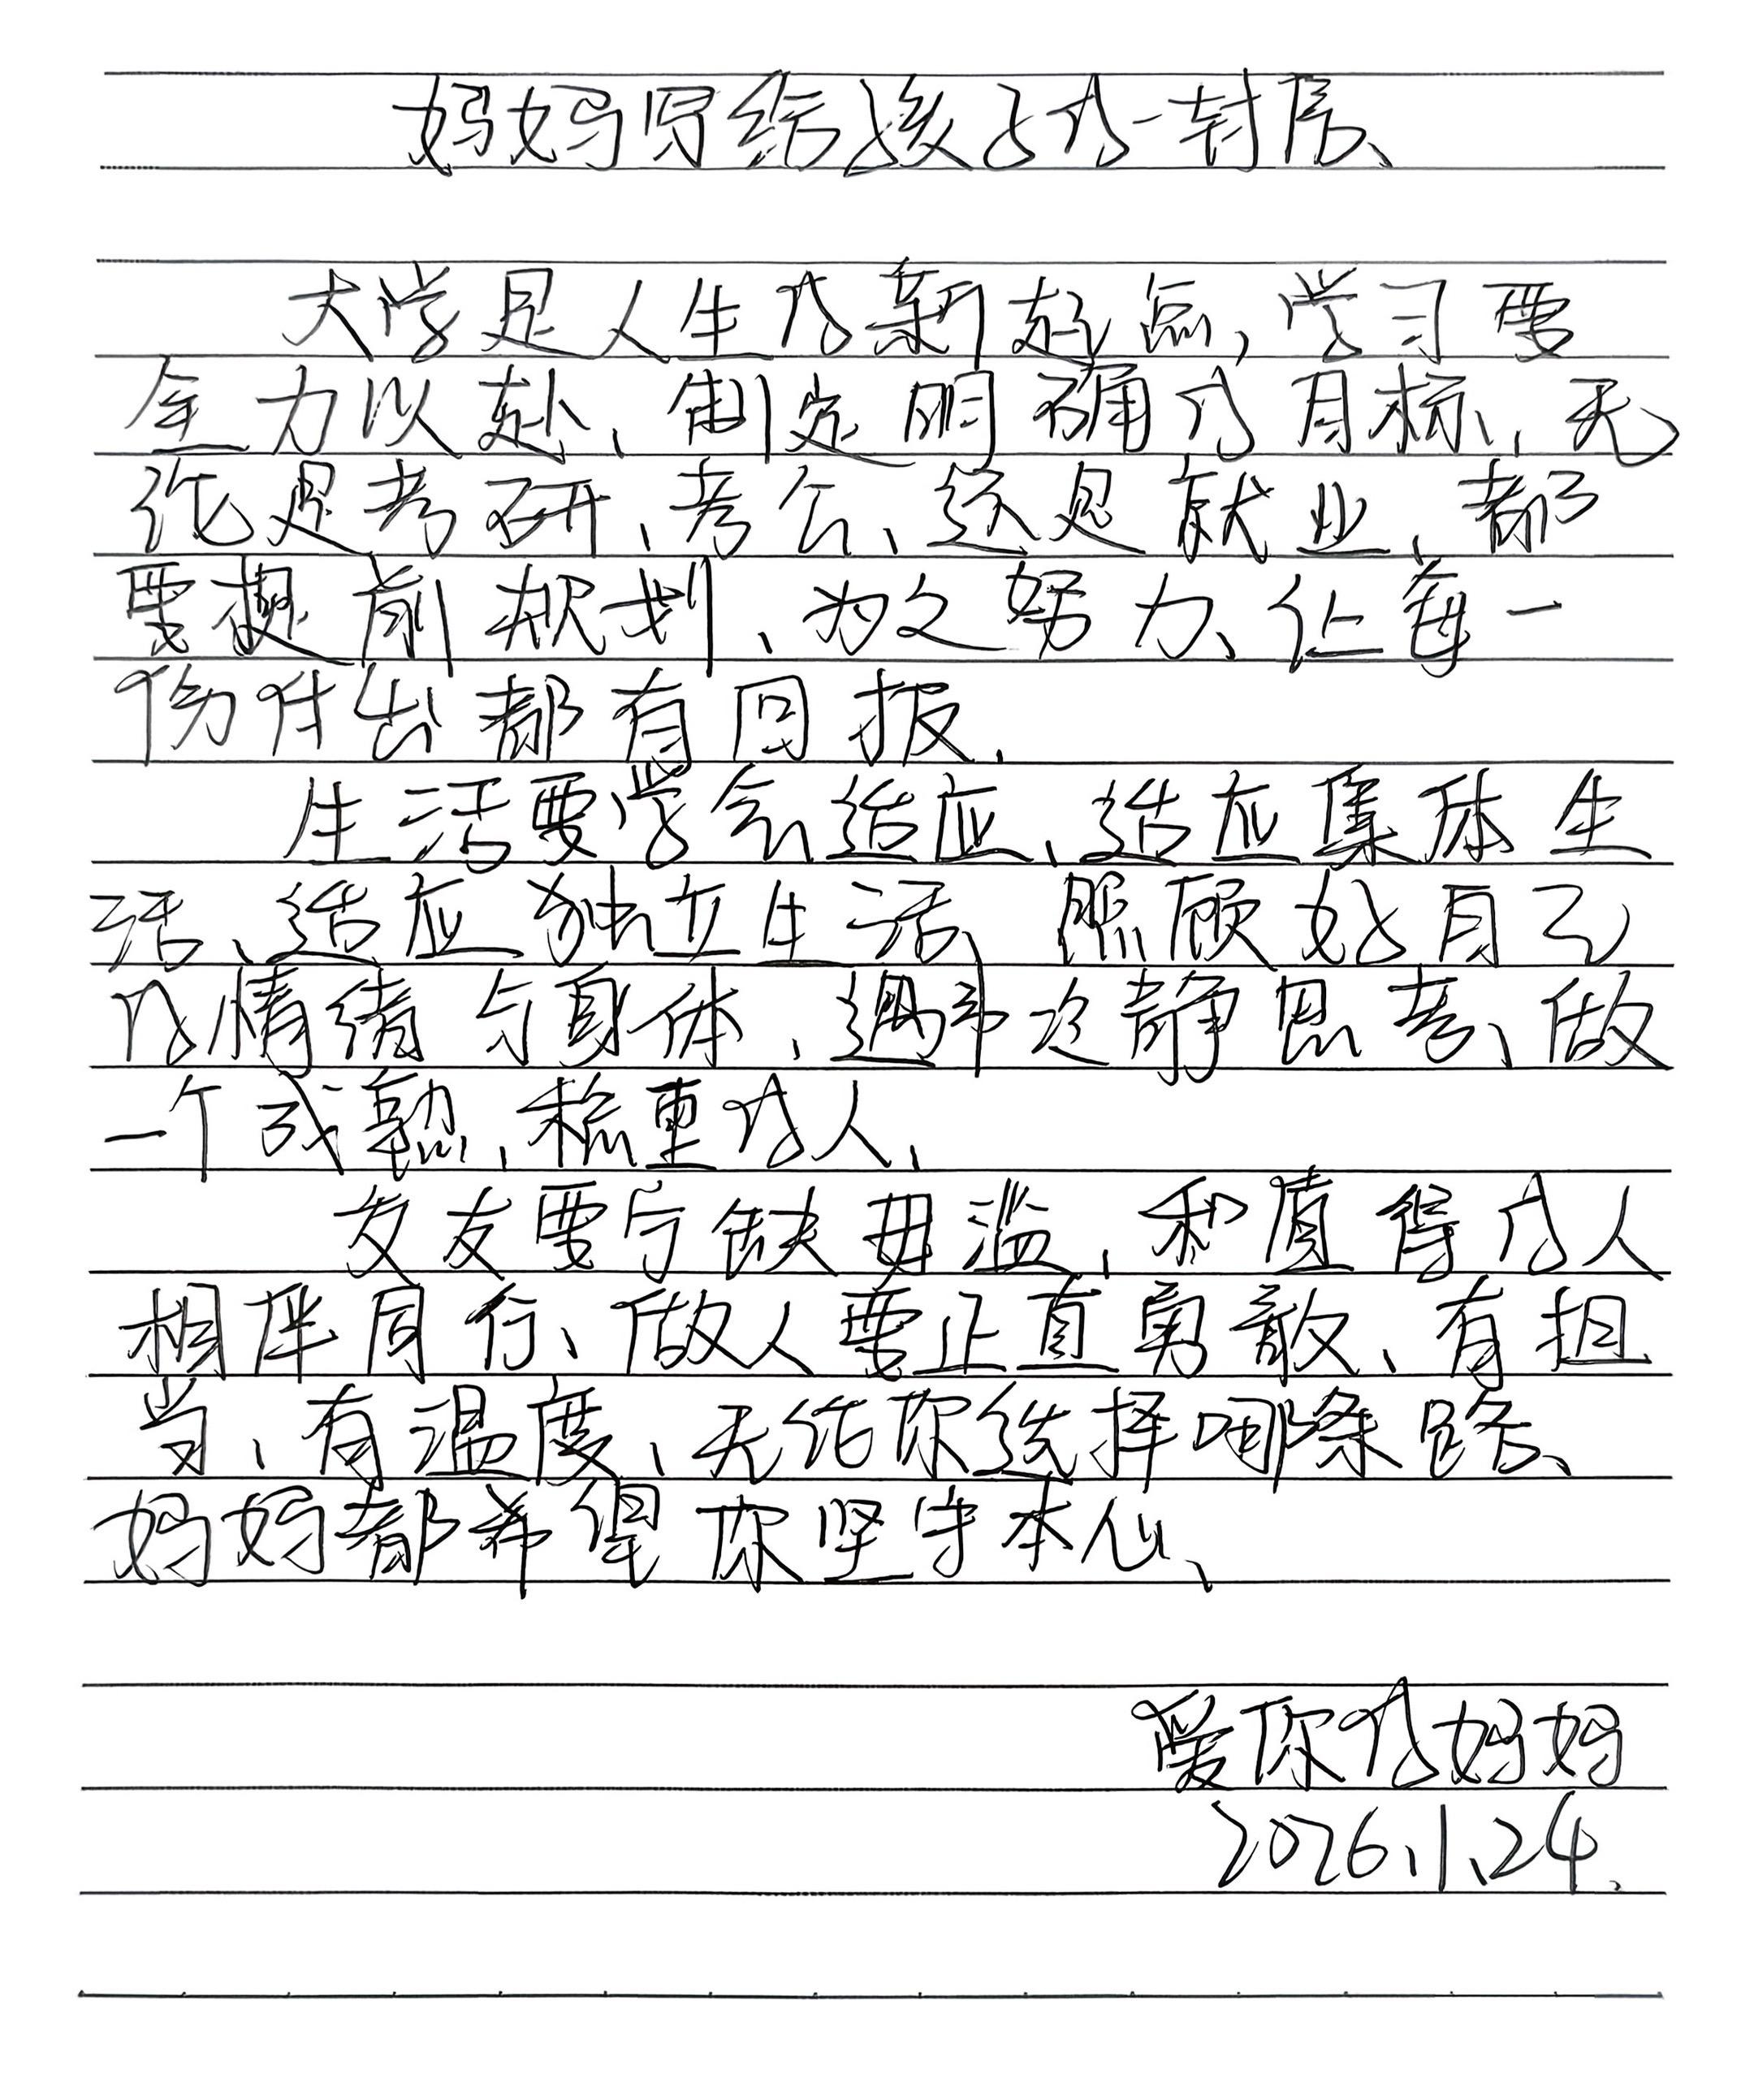 妈妈写给孩子的一封信、
大学是人生的新起点,学习要
全力以赴、制定明确的目标、无
论是考研、考公、还是就业、都
要提前规划、为之努力、让每一
份付出都有回报.
生活要学会适应、适应集体生
活、适应独立生活、照顾好自己
的情绪与身体、遇事冷静思考、做
一个成熟、稳重的人、
交友要宁缺毋滥、和值得的人
相伴同行、做人要正直勇敢、有担
当、有温度、无论你选择哪条路、
妈妈都希望你坚守本心、
爱你的妈妈
2026.1.24.